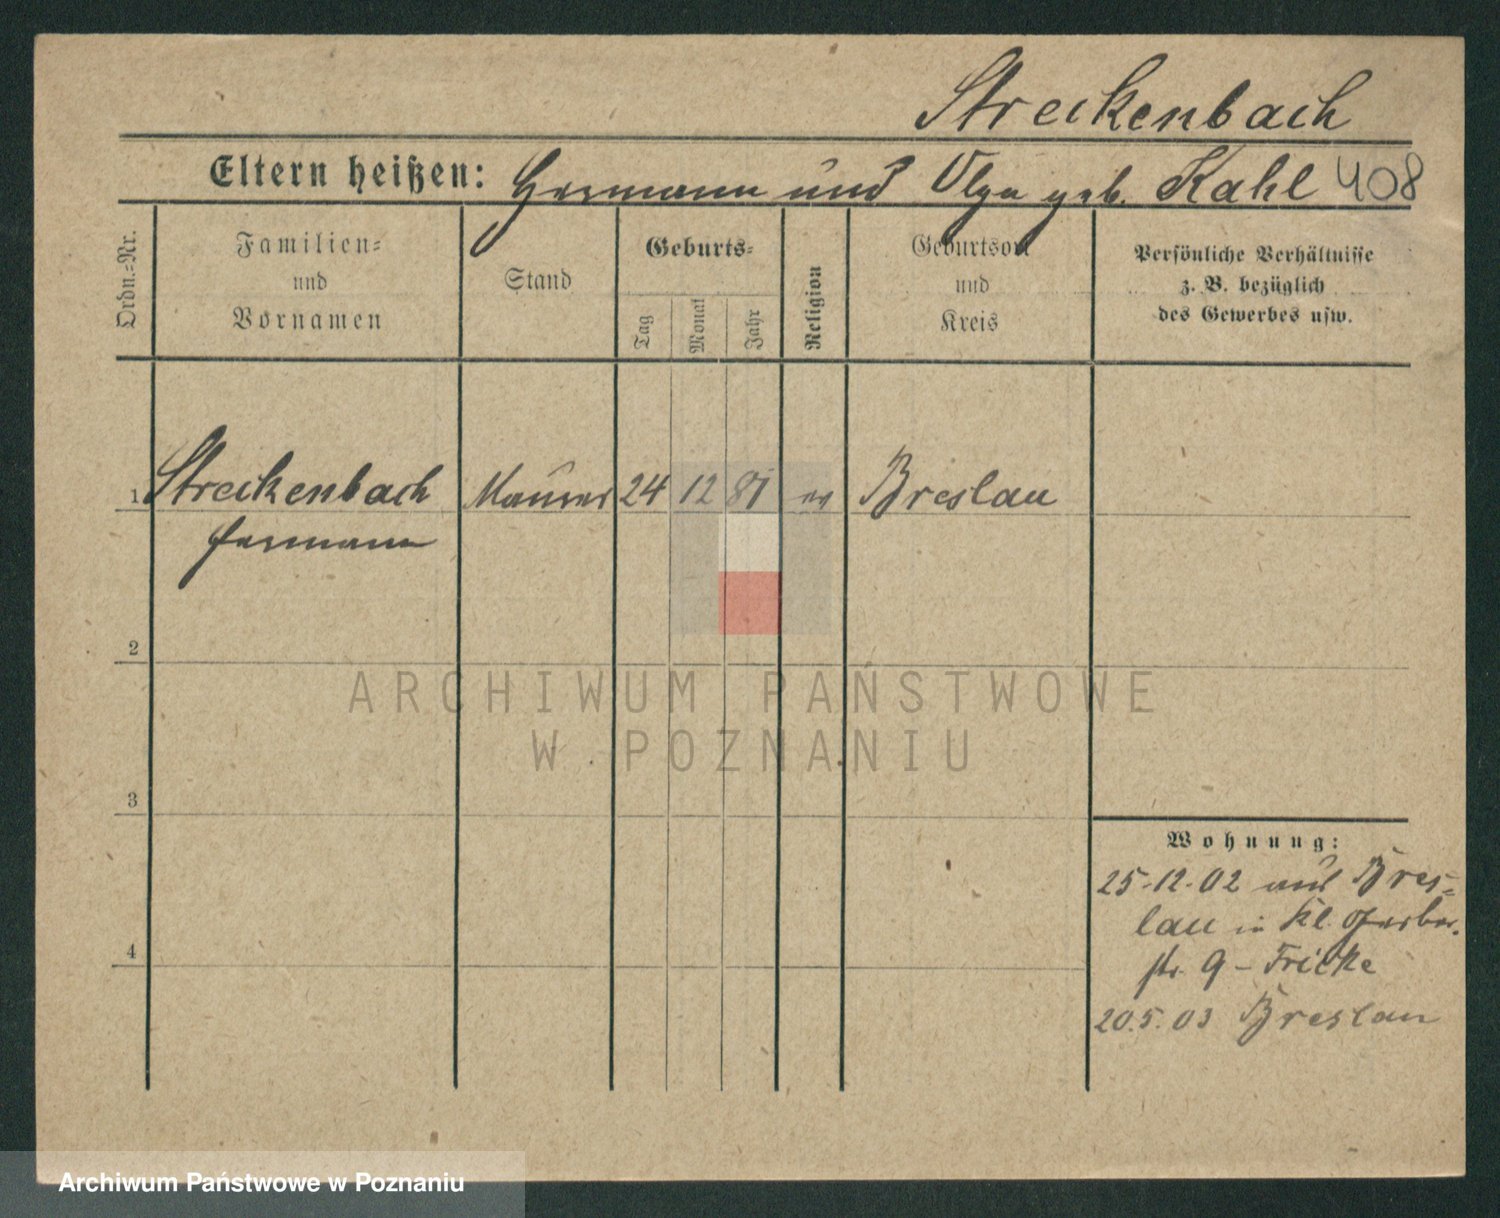 Streckenbach
Eltern heißen: Hermann und Olga geb. Kahl 408
Ordn.=Nr.
Familien=
und
Vornamen
Stand
Geburts=
Tag
Monat
Jahr
Religion
Geburtsort
und
Kreis
Persönliche Verhältnisse
z. B. bezüglich
des Gewerbes usw.
1 Streckenbach Maurer 24 12 81 ev Breslau
Hermann
2
3
4
Wohnung:
25.12.02 aus Bres=
lau in Kl. Gerber.
str. 9 - Fricke
20.5.03 Breslau
ARCHIWUM PAŃSTWOWE
W POZNANIU
Archiwum Państwowe w Poznaniu